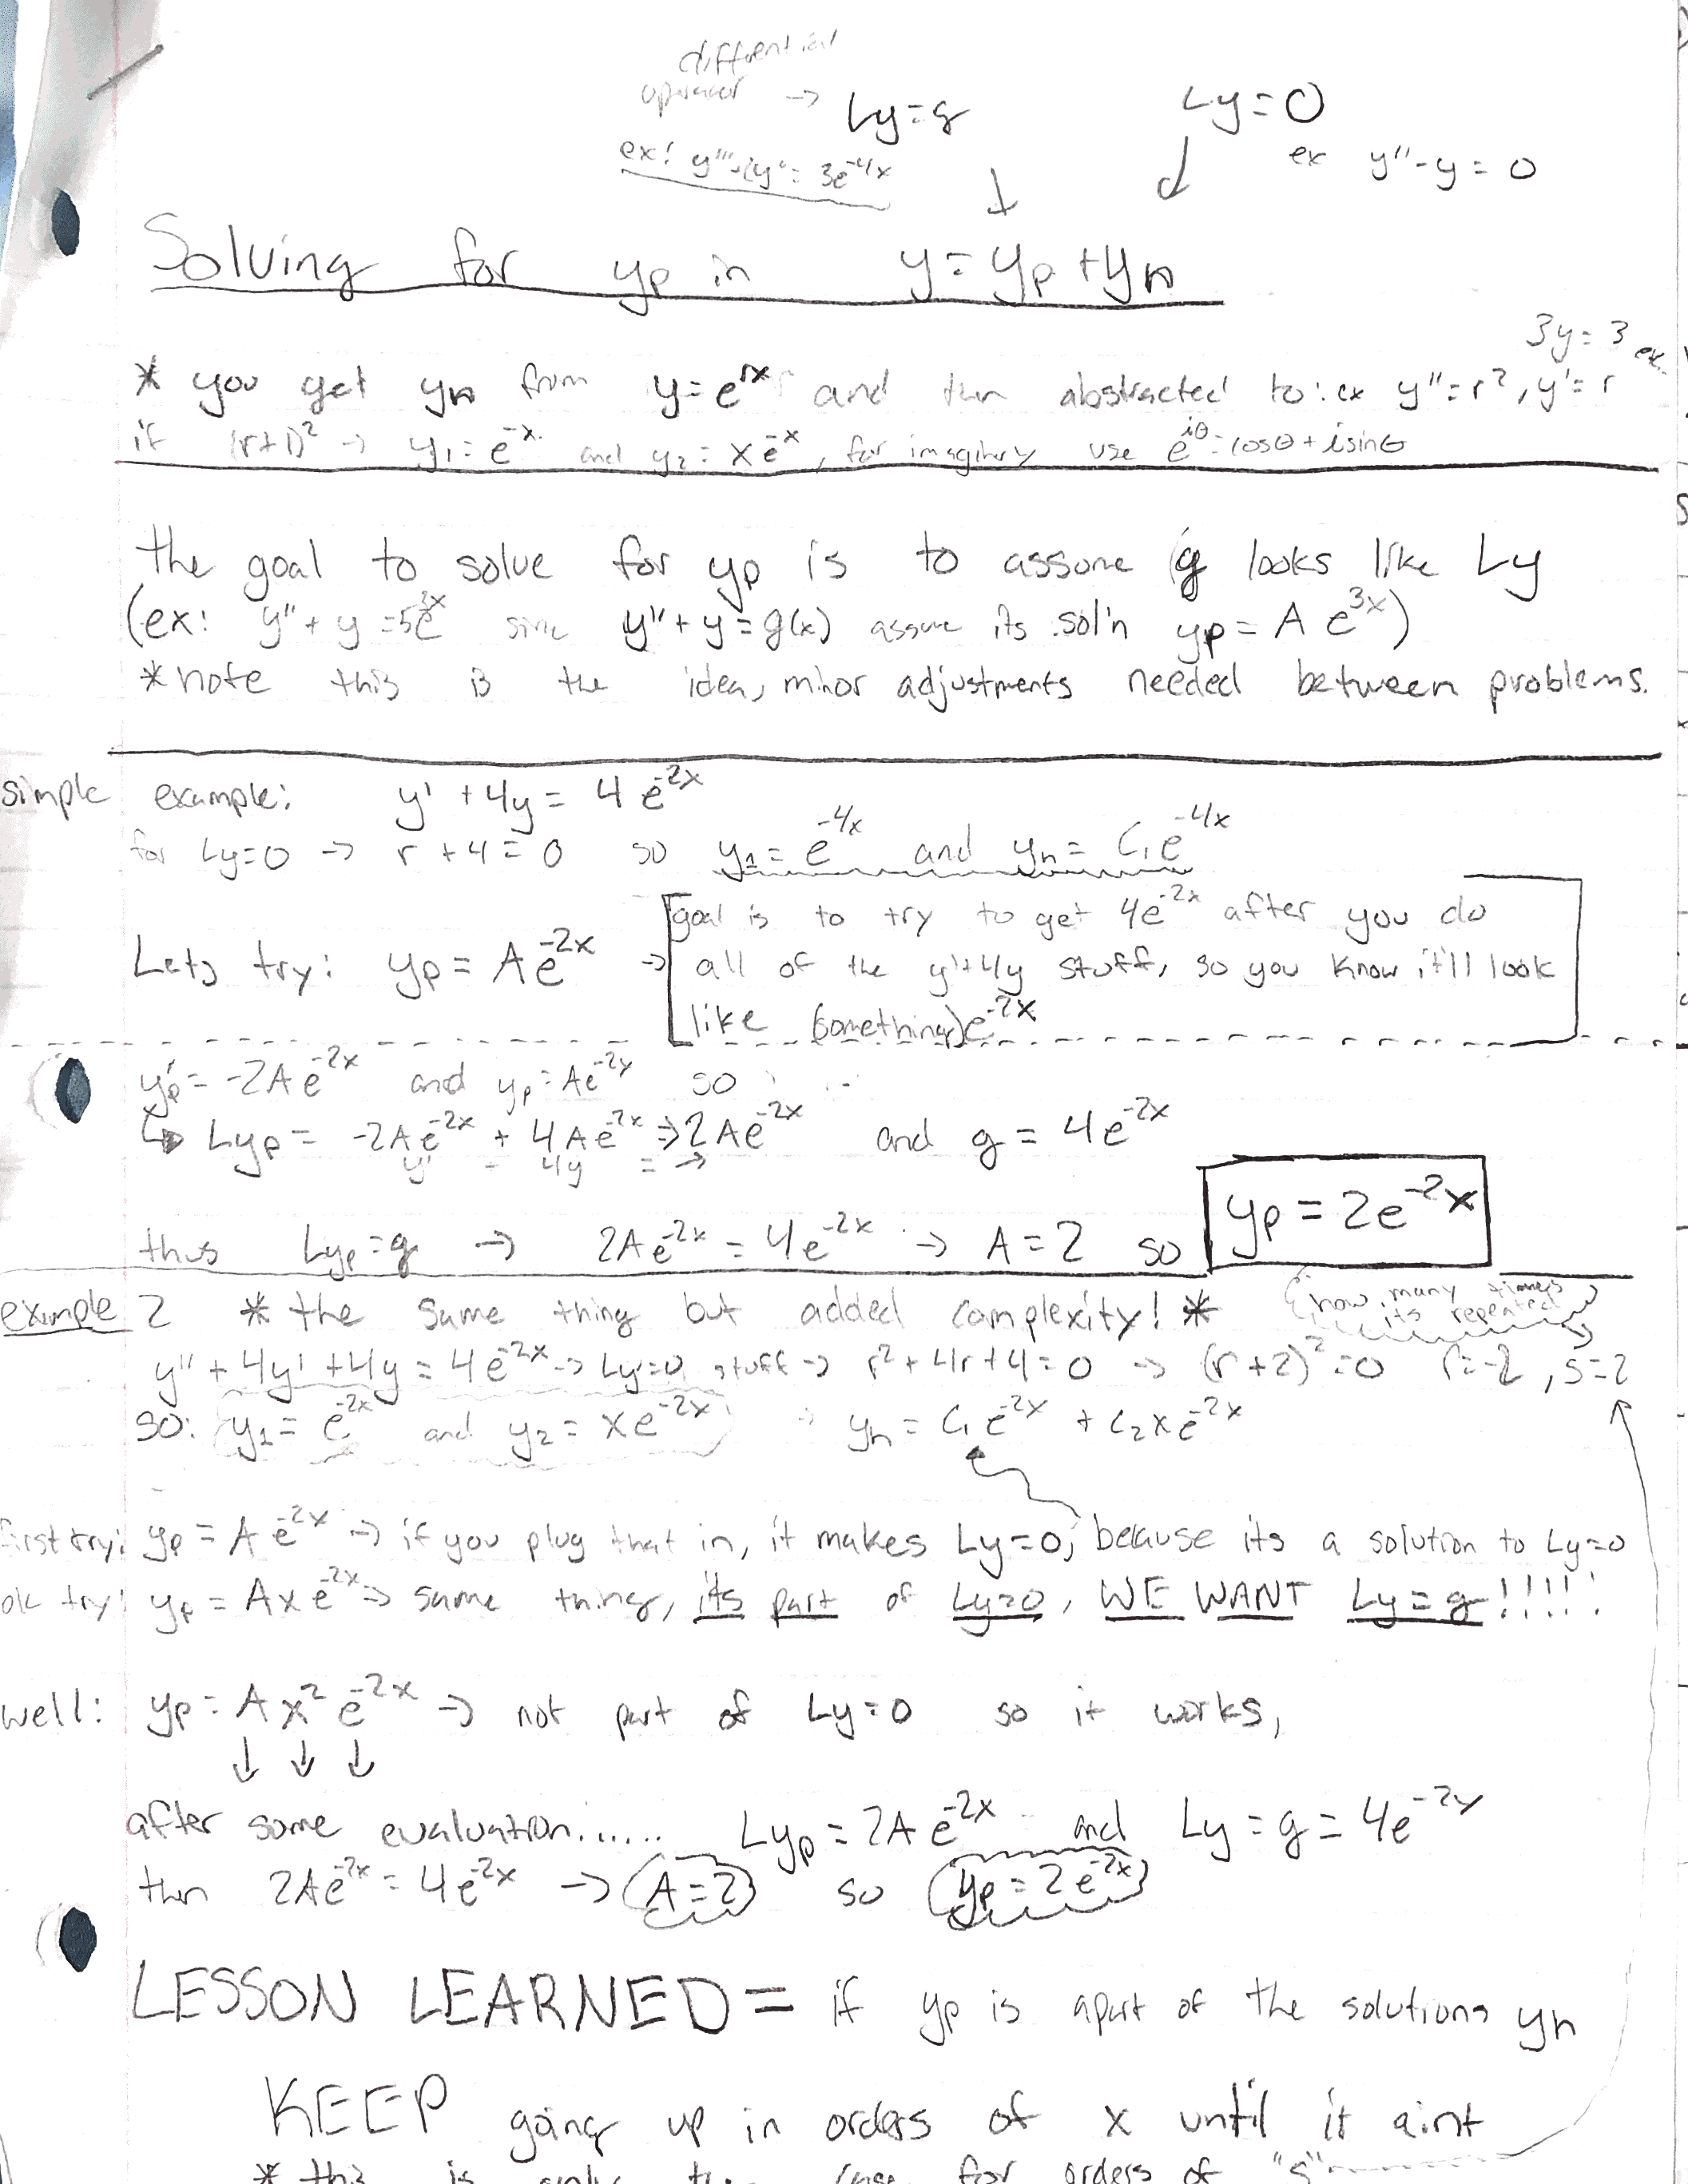 differential
operator → Ly=g
Ly=0
ex! y'''-2y''= 3e^-4x
ex y''-y=0
Solving for yp in y=yp+yh
3y=3 ex.
* you get yh from y=e^rx and then abstracted to: ex y''=r², y'=r
if (r+1)² → y1=e^-x and y2=xe^-x, for imaginary use e^iθ=cosθ+isinθ
the goal to solve for yp is to assume g looks like Ly
(ex: y''+y=5e^3x since y''+y=g(x) assume its sol'n yp=Ae^3x)
*note this is the idea, minor adjustments needed between problems.
simple example: y'+4y=4e^-2x
for Ly=0 → r+4=0 so y1=e^-4x and yh=C1e^-4x
goal is to try to get 4e^-2x after you do
Lets try: yp=Ae^-2x → all of the y'+4y stuff, so you know it'll look
like (something)e^-2x
yp'=-2Ae^-2x and yp=Ae^-2x so
↳ Lyp= -2Ae^-2x + 4Ae^-2x ⇒ 2Ae^-2x and g=4e^-2x
y' - 4y = →
thus Lyp=g → 2Ae^-2x=4e^-2x → A=2 so yp=2e^-2x
how many times
its repeated
example 2 * the same thing but added complexity! *
y''+4y'+4y=4e^-2x → Ly=0 stuff → r²+4r+4=0 → (r+2)²=0 r=-2, s=2
so: y1=e^-2x and y2=xe^-2x → yh=C1e^-2x + C2xe^-2x
first try: yp=Ae^-2x → if you plug that in, it makes Ly=0, because its a solution to Ly=0
ok try: yp=Axe^-2x → same thing, its part of Ly=0, WE WANT Ly=g!!!!!
well: yp=Ax²e^-2x → not part of Ly=0 so it works,
↓ ↓ ↓
after some evaluation...... Lyp=2Ae^-2x and Ly=g=4e^-2x
then 2Ae^-2x=4e^-2x → A=2 so yp=2e^-2x
LESSON LEARNED = if yp is apart of the solutions yh
KEEP going up in orders of x until it aint
* this is only the case for orders of "s"